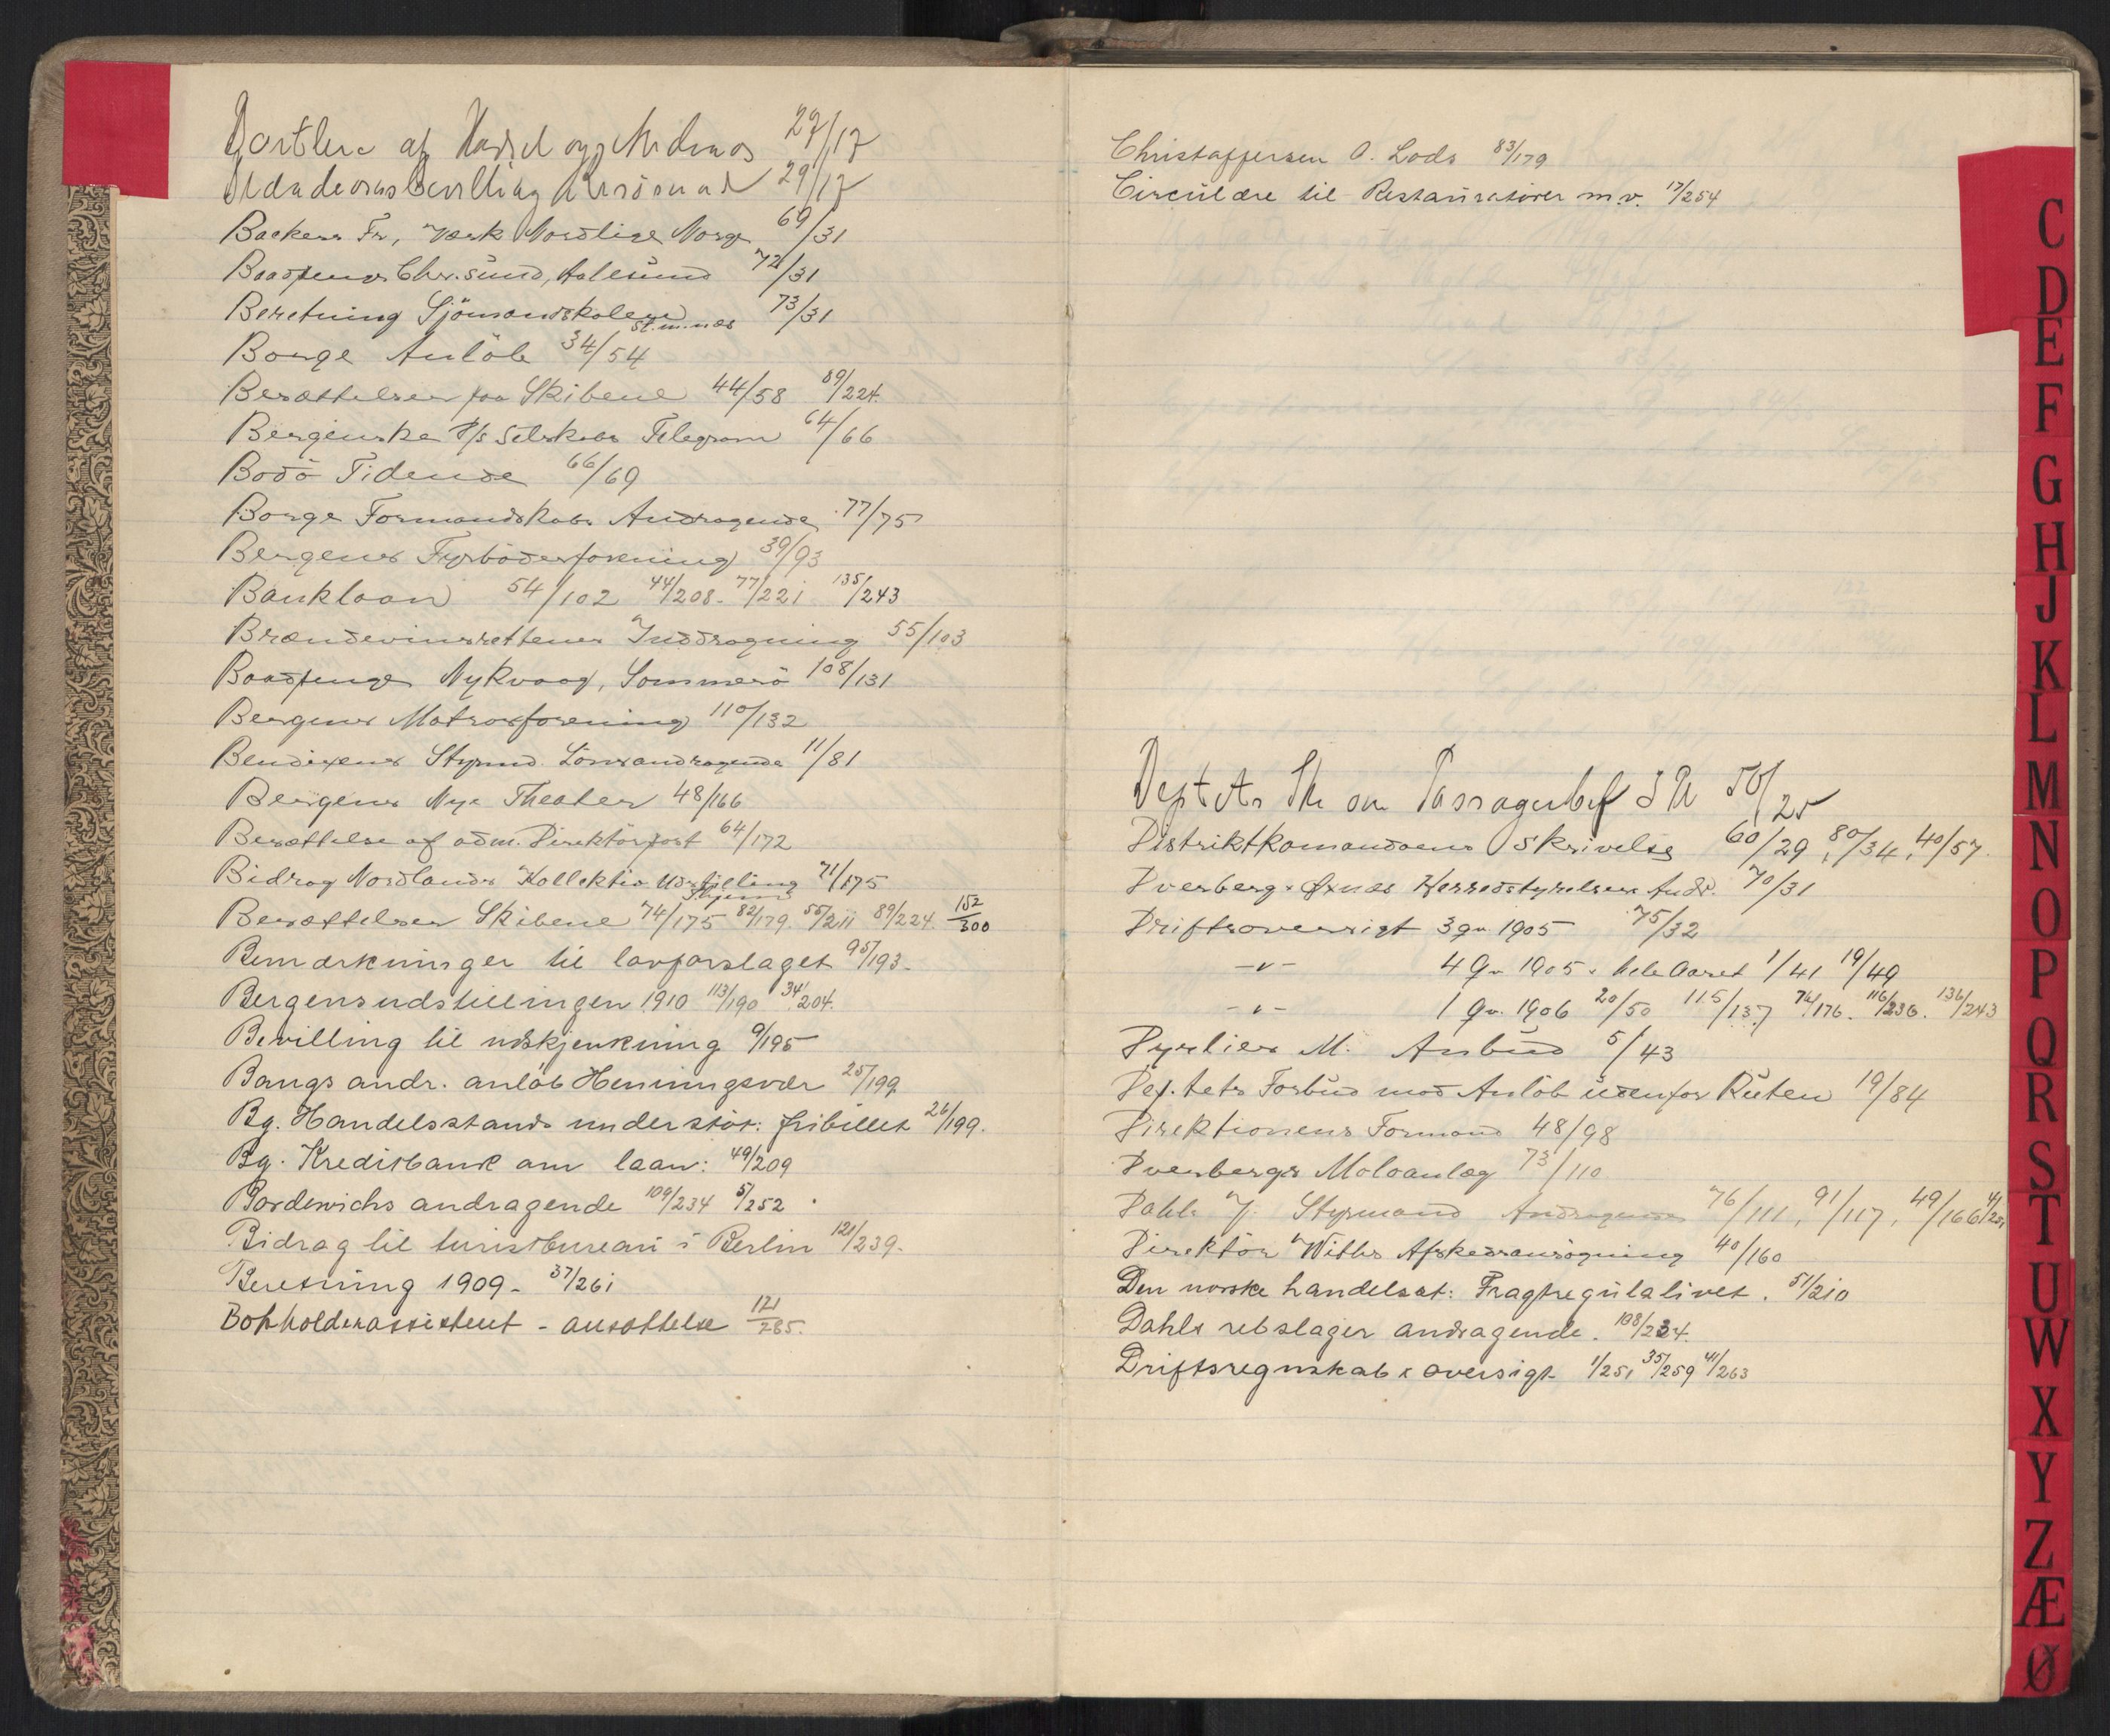 af Hassel og 27/17
29/17
Backers Fr, Værk Nordlige Norge 69/31
Baadpenge Chr.sund, Aalesund 72/31
Beretning Sjömandskolene 73/31
St.m.næs
Borge Anlöb 34/54
Besættelser paa Skibene 44/58 89/224.
Bergenske D/s Selskabs Telegram 64/66
Bodö Tidende 66/69
Borge Formandskabs Andragende 77/75
Bergens Fyrböderforening 39/93
Banklaan 54/102 44/208. 77/221 135/243
Brændevinsrettens Inddragning 55/103
Baadpenge Nykvaag, Sommerö 108/131
Bergens Matrosforening 110/132
Bendixens Styrmd. Lönsandragende 11/81
Bergens Nye Theater 48/166
Besættelse af adm. Direktörpost 64/172
Bidrag Nordlands Kollektiv Udstilling 71/175
Besættelser Skibene 74/175 82/179. 55/211 89/224. 152/300
Bemærkninger til lovforslaget 95/193.
Bergensudstillingen 1910 113/190 34/204.
Bevilling til udskjenkning 9/195
Bangs andr. anlöb Henningsvær 25/199
Bg. Handelsstands understöt: fribillet 26/199.
Bg. Kreditbank om laan: 49/209
Bordewichs andragende 109/234 5/252
Bidrag til turistbureau i Berlin 121/239.
Beretning 1909. 37/261
Bokholderassistent - ansættelse 121/285.
Christoffersen O. Lods 83/179
Circulære til Restauratörer m.v. 17/254
Dept.ts Skr om Passagerbef 50/25
Distriktkomandoens Skrivelse 60/29, 80/34, 40/57.
Dverberg & Öxnes Herredstyrelsers Andr. 70/31
Driftsoversigt 3 qv 1905 75/32
-"- 4 Qv. 1905 & hele Aaret 1/41 19/49
-"- 1 Qv. 1906 20/50 115/137 76/176. 116/236. 136/243
Dyrlies M. Anbud 5/43
Dep.tets Forbud mod Anlöb udenfor Ruten 19/84
Direktionens Formand 48/98
Dverbergs Moloanlæg 73/110
Dahls J. Styrmand Andragende 76/111, 91/117, 49/166
Direktör Withs Afskedsansögning 40/160
Den norske handelsst: Fragtregulativet. 51/210
Dahls rebslager andragende. 108/234.
Driftsregnskab & oversigt 1/251 35/259 41/263
C
D
E
F
G
H
J
K
L
M
N
O
P
Q
R
S
T
U
W
X
Y
Z
Æ
Ø